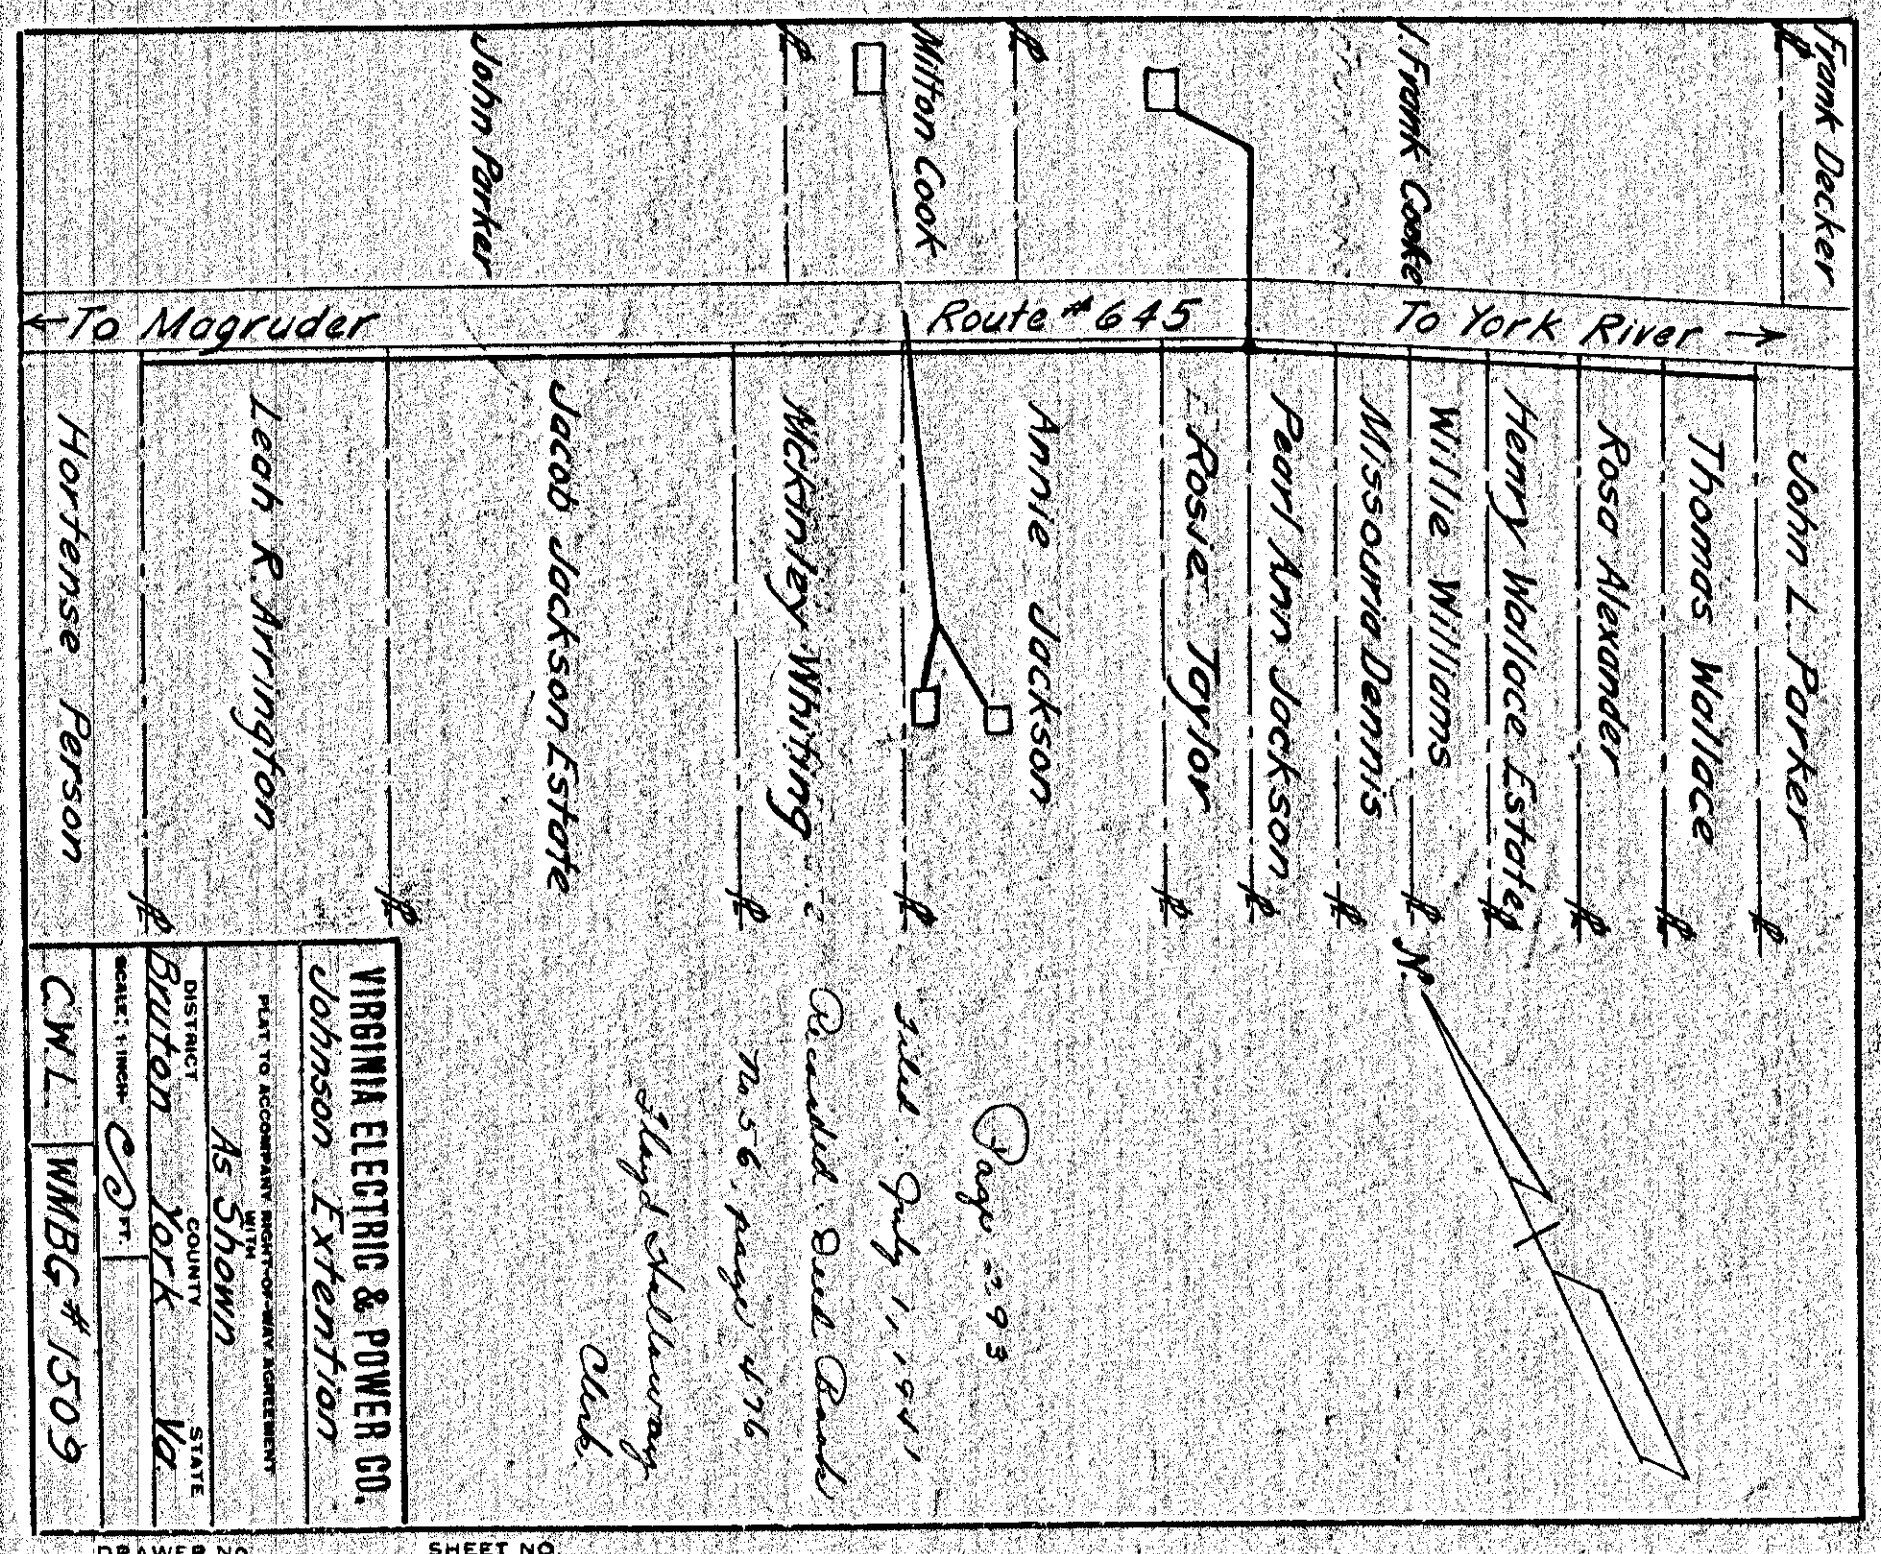 Frank Decker
I. Frank Cooke
Milton Cook
John Parker
← To Magruder
Route # 645
To York River →
John L. Parker
Thomas Wallace
Rosa Alexander
Henry Wallace Estates
Willie Williams
Missouria Dennis
Pearl Ann Jackson
Rosie Taylor
Annie Jackson
McKinley Whiting
Jacob Jackson Estate
Leah R. Arrington
Hortense Person
N.
Page 293
Filed: July 11, 1951
Recorded: Deed Book
No 56, page 476
Floyd Holloway
Clerk.
VIRGINIA ELECTRIC & POWER CO.
Johnson Extention
PLAT TO ACCOMPANY RIGHT-OF-WAY AGREEMENT
WITH
As Shown
DISTRICT COUNTY STATE
Bruton York Va.
SCALE: 1 INCH= FT.
C.W.L. WMBG # 1509
DRAWER NO.
SHEET NO.